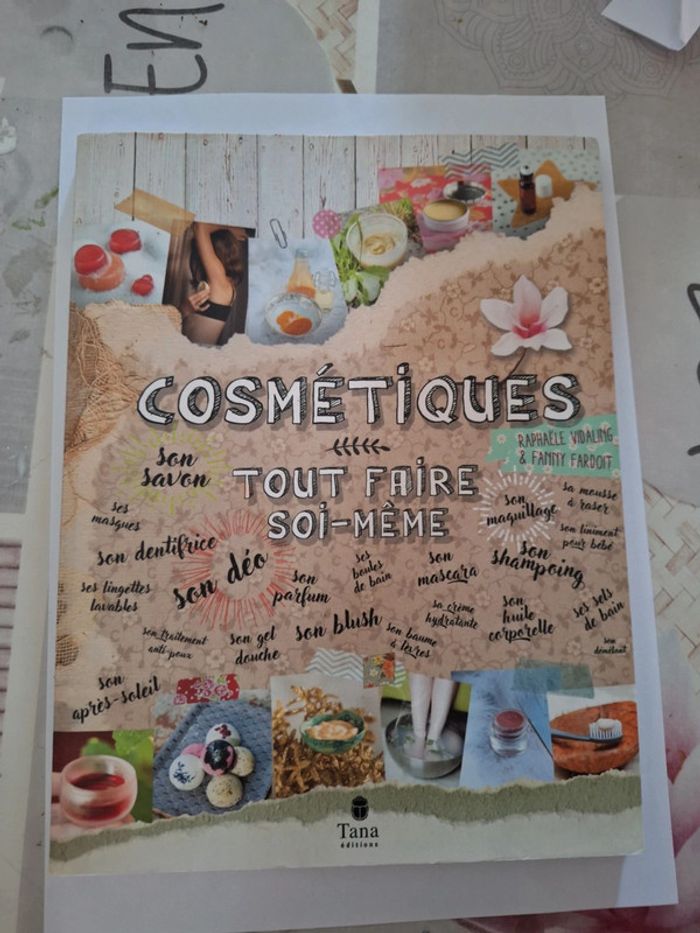 En
COSMÉTIQUES
RAPHAËLE VIDALING
& FANNY FARDOIT
TOUT FAIRE
SOI-MÊME
son
savon
ses
masques
son dentifrice
son déo
ses lingettes
lavables
son
parfum
ses
boules
de bain
son
mascara
son
maquillage
sa mousse
à raser
son liniment
pour bébé
son
shampoing
son traitement
anti-poux
son gel
douche
son blush
son baume
à lèvres
sa crème
hydratante
son
huile
corporelle
ses sels
de bain
son
démêlant
son
après-soleil
Tana
éditions